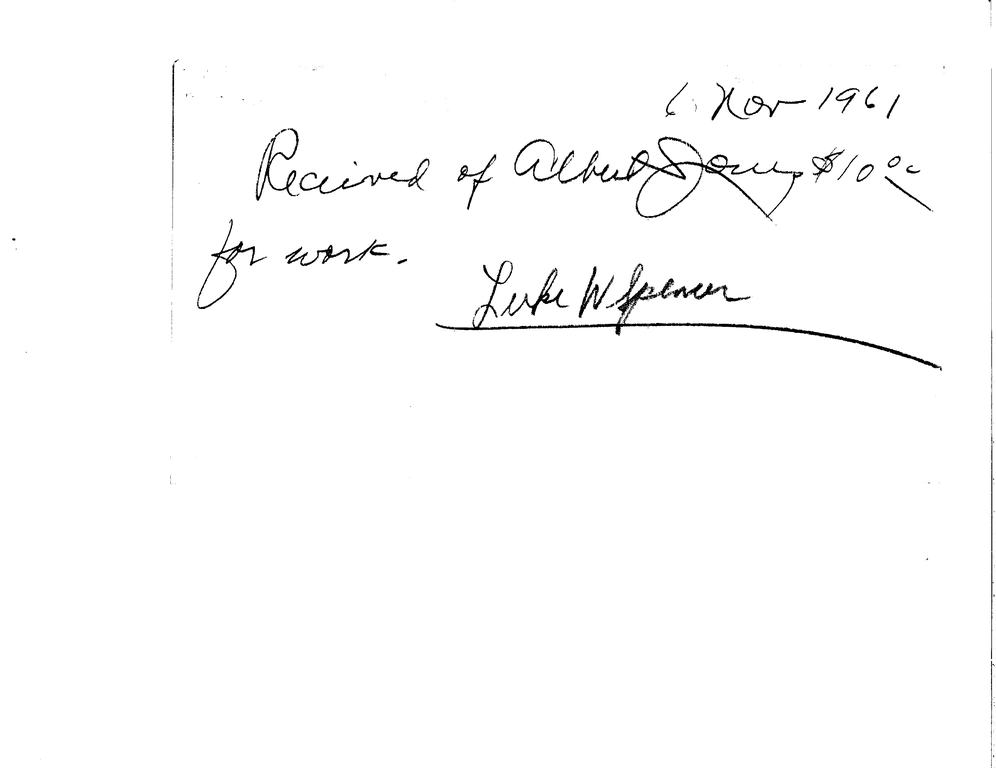 6 Nov 1961
Received of Albert Jones $10 00
for work.
Luke W Spencer